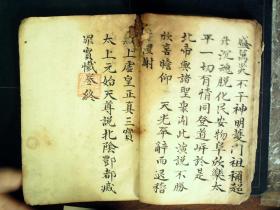 盛萬災不干神明護門祖禰超
昇沉魂脫化民安物阜欣樂太
平一切有情同登道岸於是
北帝與諸聖衆聞此演說不勝
欣喜瞻仰　天光奉辭而退稽
首禮謝
上虛皇正真三寶
太上元始天尊說北陰酆都滅
罪寶懺卷終